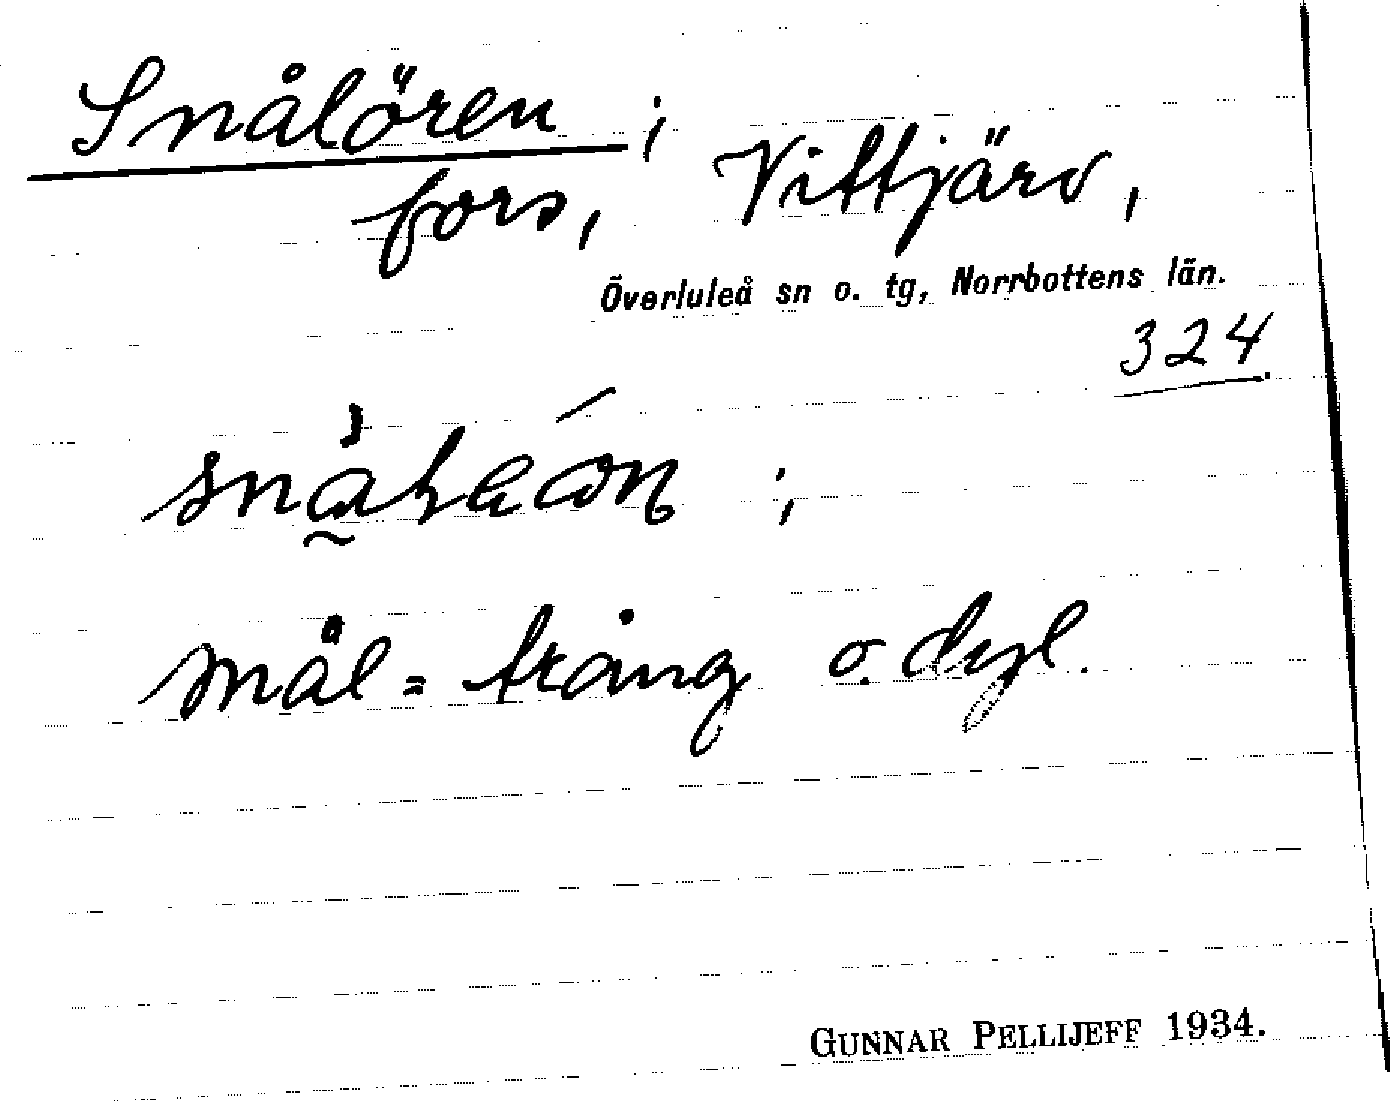 Snålören ;
fors, Vittjärv,
Överluleå sn o. tg, Norrbottens län.
324.
snål = trång o. dyl.
GUNNAR PELLIJEFF 1934.